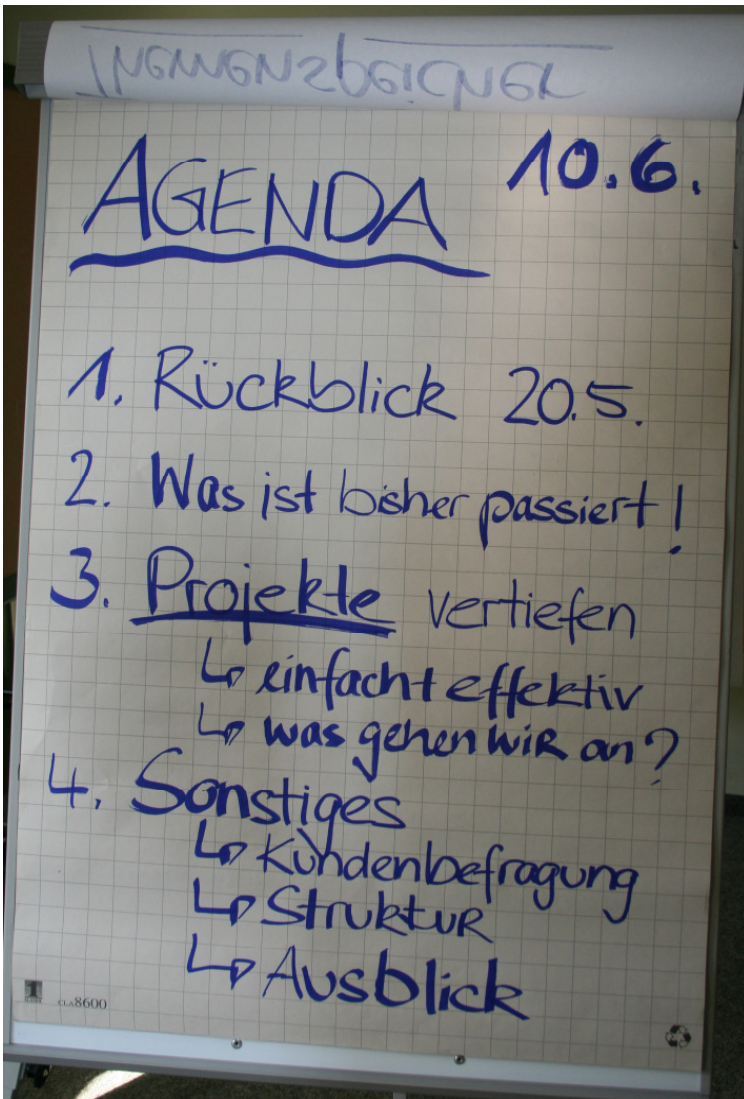 Themenspeicher
10.6.
AGENDA
1. Rückblick 20.5.
2. Was ist bisher passiert!
3. Projekte vertiefen
↳ einfacht effektiv
↳ was gehen wir an?
4. Sonstiges
↳ Kundenbefragung
↳ Struktur
↳ Ausblick
8600